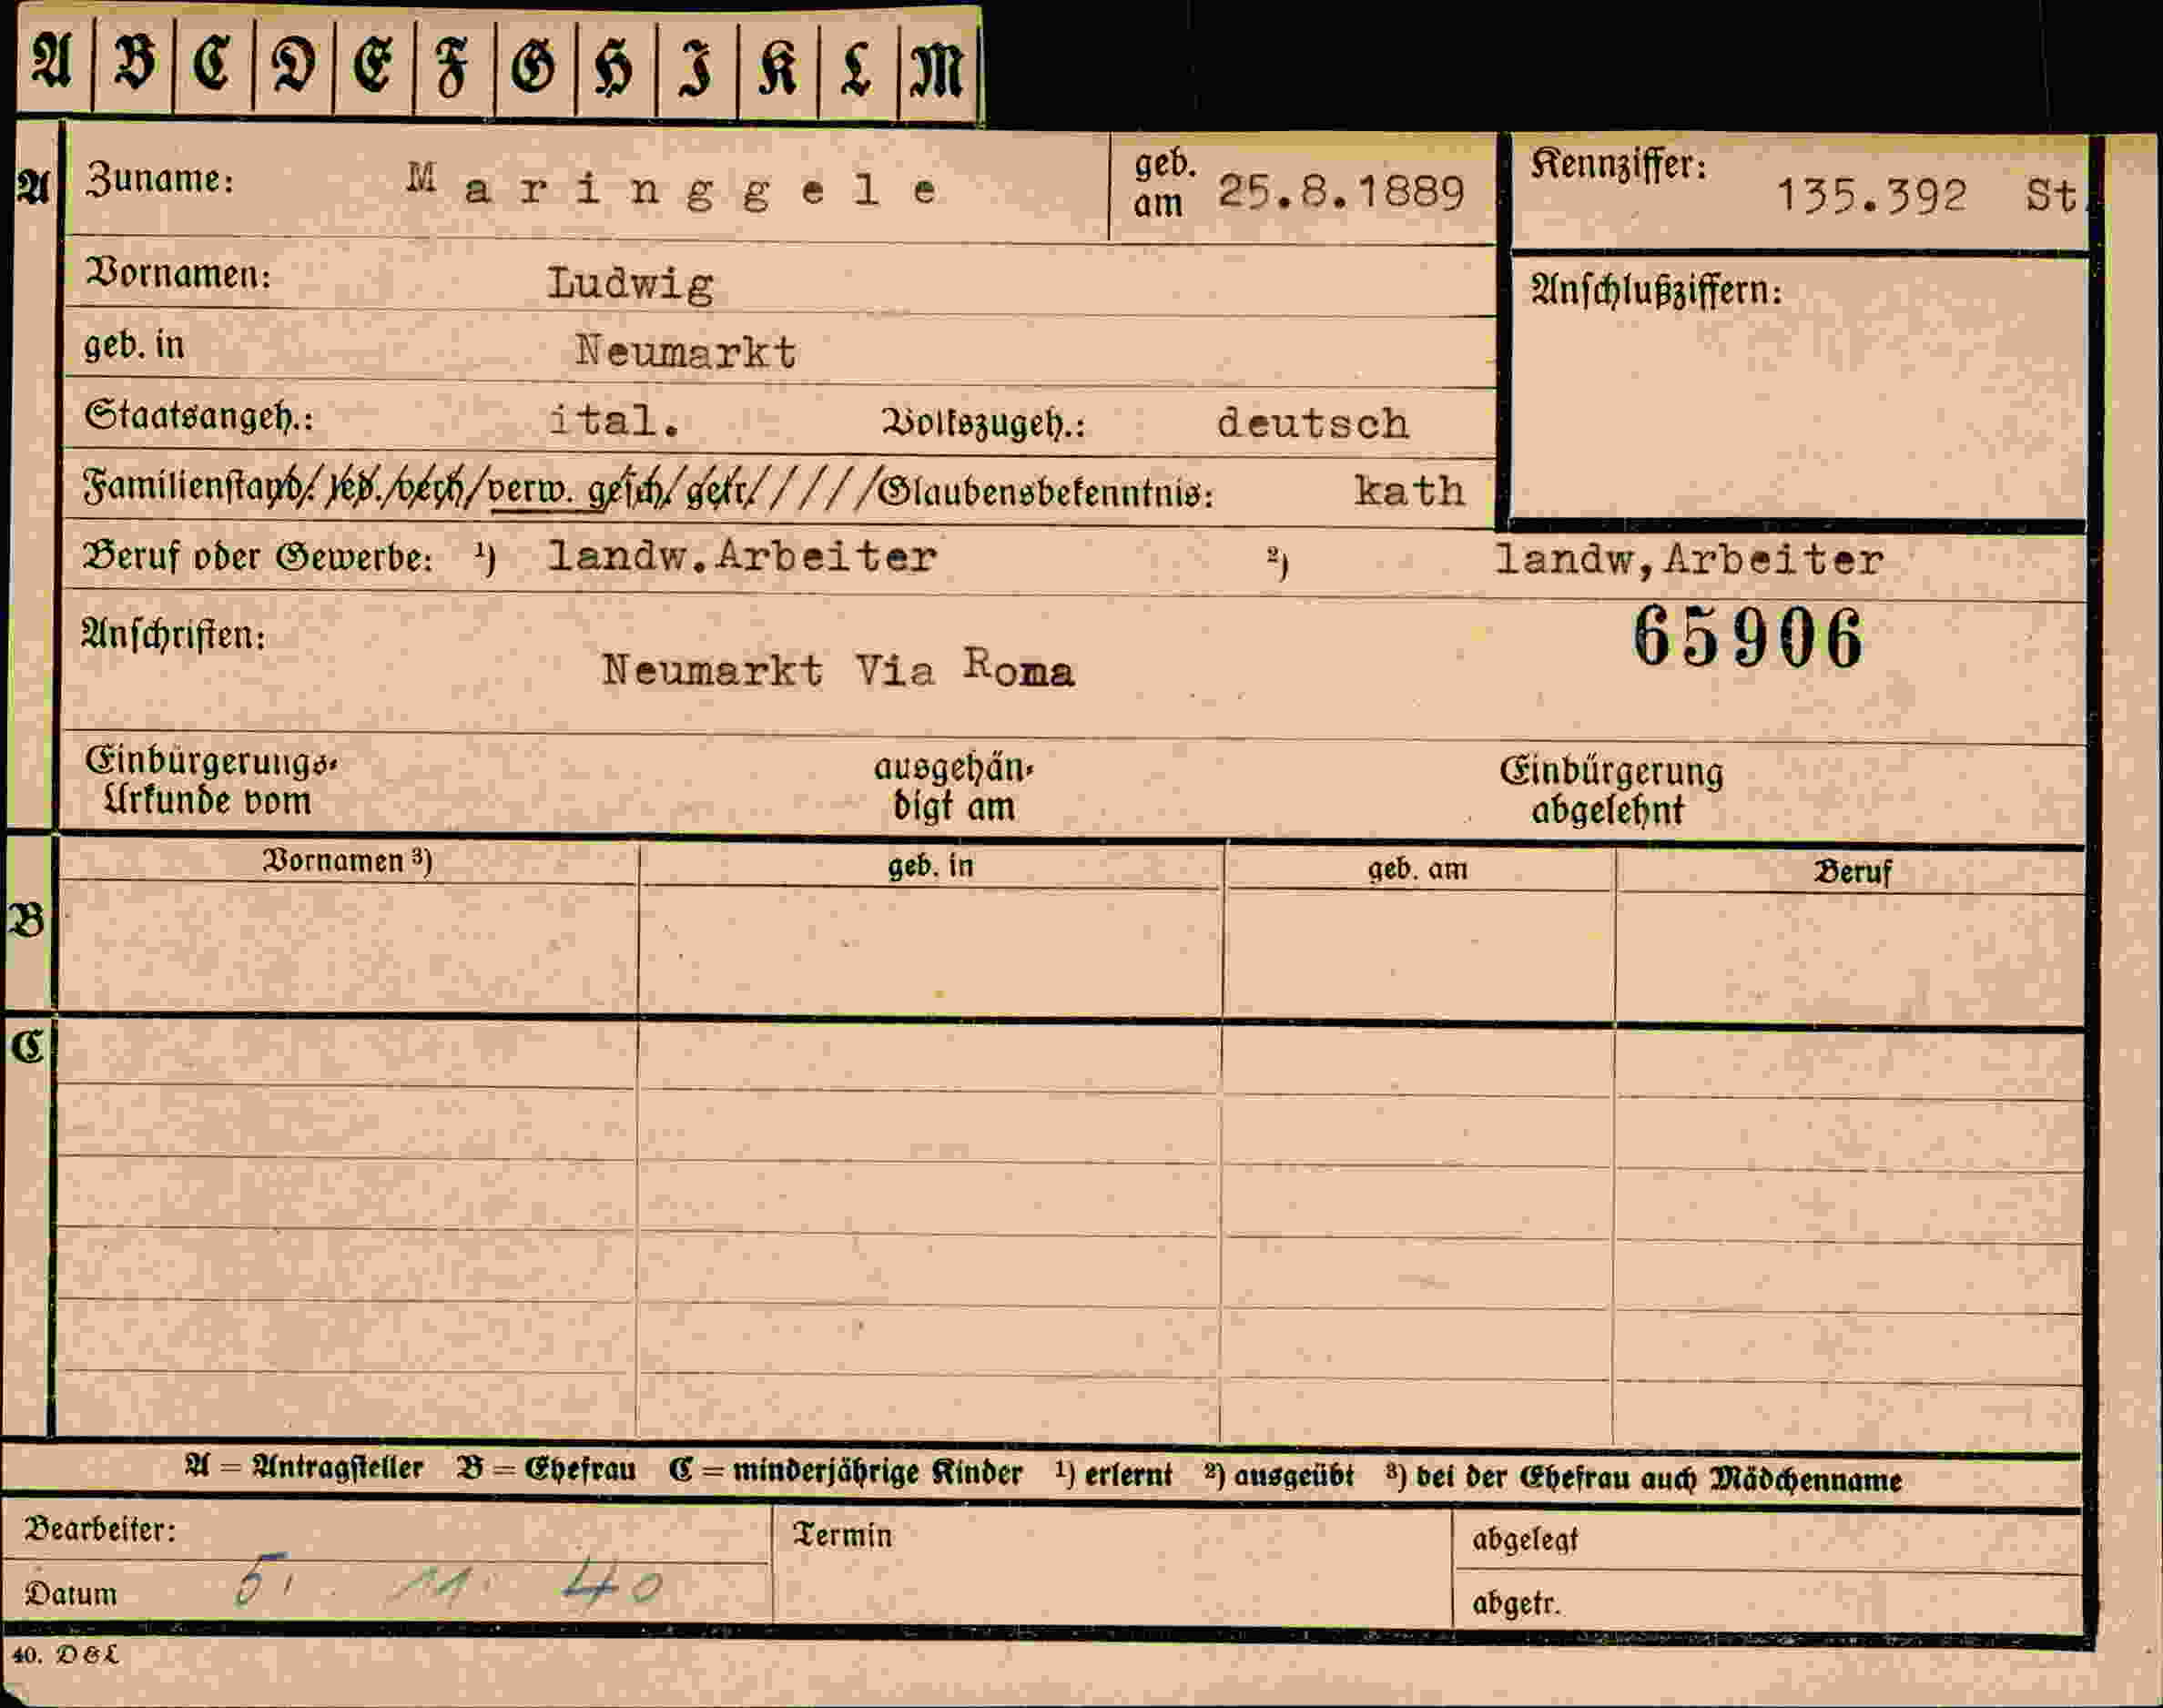 A B C D E F G H I K L M
A Zuname: Maringgele geb. am 25.8.1889 Kennziffer: 135.392 St.
Vornamen: Ludwig Anschlußziffern:
geb. in Neumarkt
Staatsangeh.: ital. Volkszugeh.: deutsch
Familienstand: led. verh. verw. gesch. getr. Glaubensbekenntnis: kath
Beruf oder Gewerbe: ¹) landw.Arbeiter ²) landw,Arbeiter
65906
Anschriften:
Neumarkt Via Roma
Einbürgerungs- ausgehän- Einbürgerung
Urkunde vom digt am abgelehnt
Vornamen ³) geb. in geb. am Beruf
B
C
A = Antragsteller B = Ehefrau C = minderjährige Kinder ¹) erlernt ²) ausgeübt ³) bei der Ehefrau auch Mädchenname
Bearbeiter: Termin abgelegt
Datum 5. 11. 40 abgetr.
40. D&L